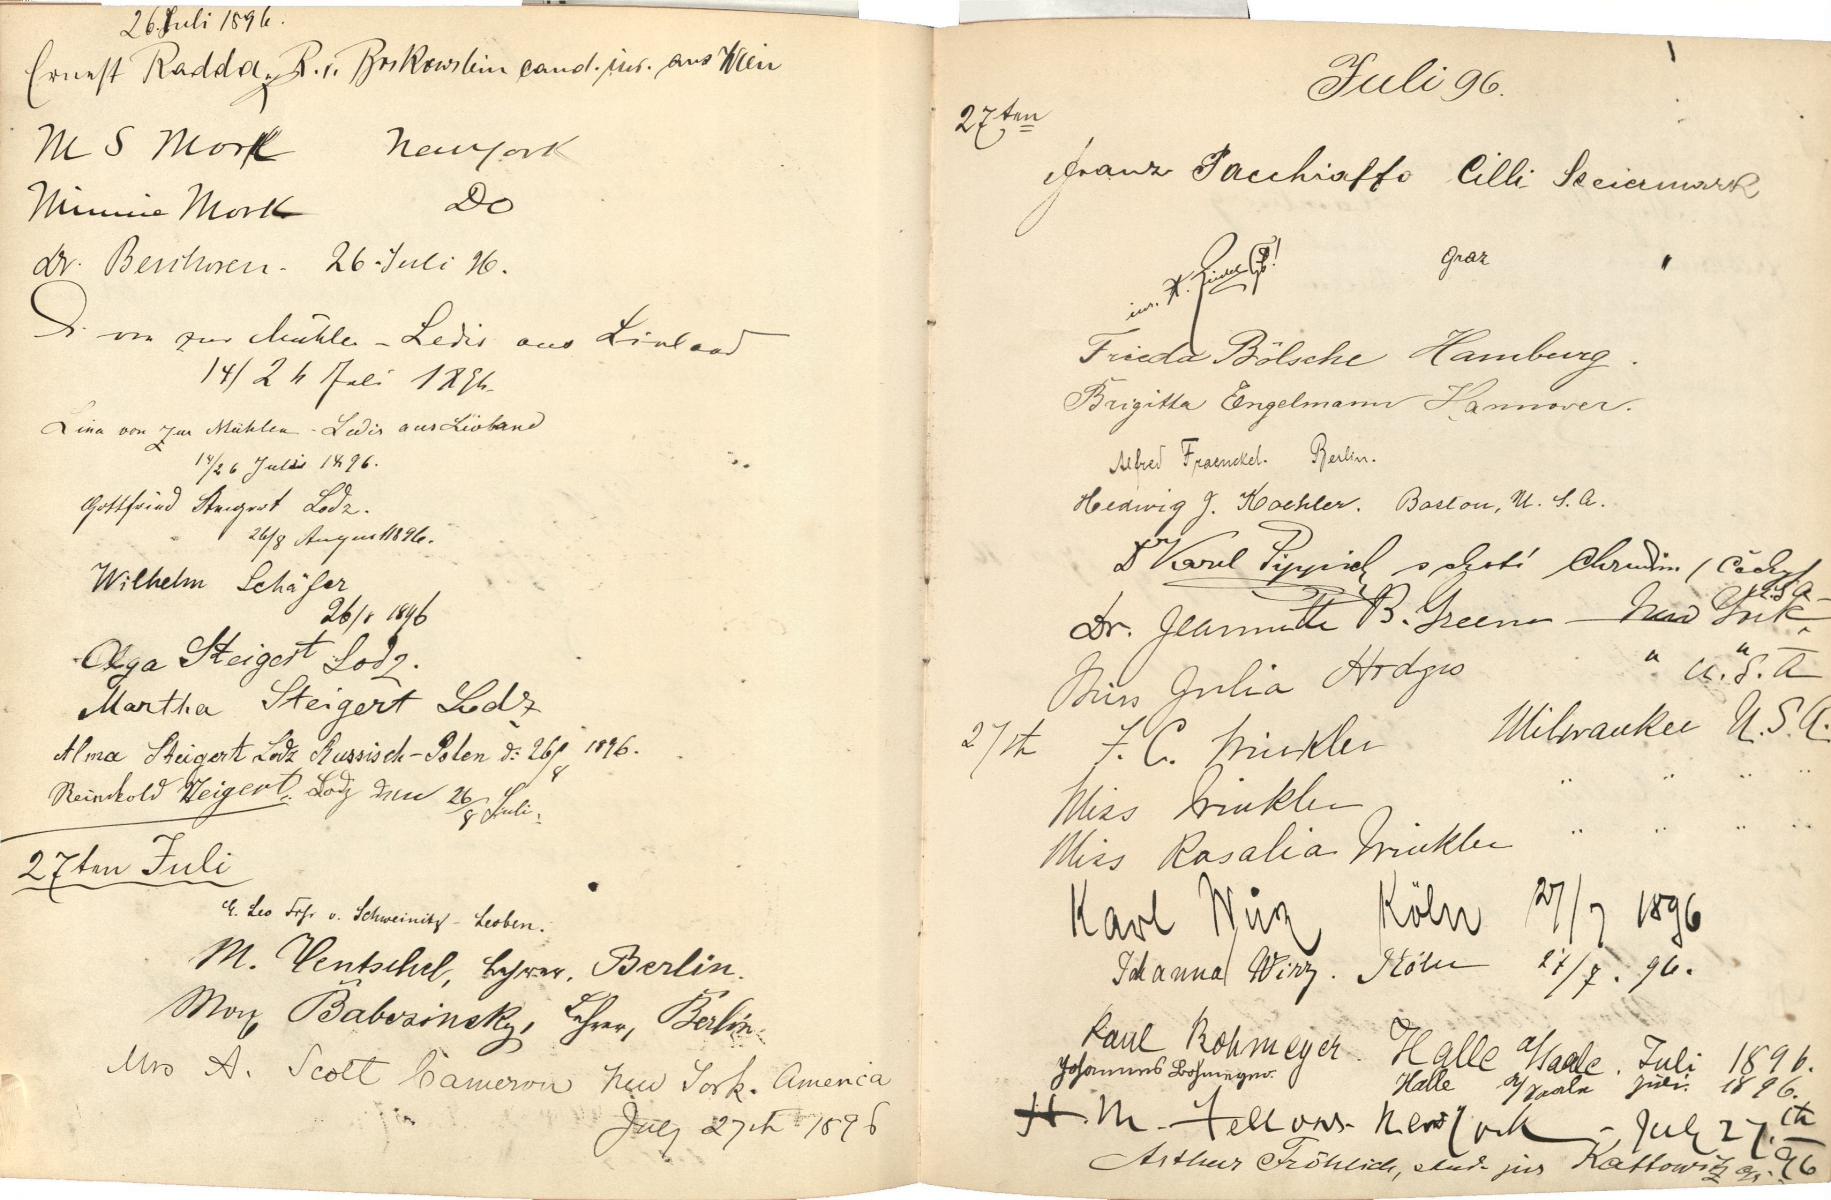 26. Juli 1896.
Ernest Radda, R. v. Boskowstein cand. jur. aus Wien
M S Mork Newyork
Minnie Mork Do
Dr. 26. Juli 96.
von zur Mühlen - Ledis aus Livland
14/26 Juli 1896.
Lina von zur Mühlen - Ledis aus Livland
14/26 Juli 1896.
Gottfried Steigert Lodz.
26/8 August 1896.
Wilhelm Schäfer
26/8 1896
Olga Steigert Lodz.
Martha Steigert Lodz
Alma Steigert Lodz Russisch-Polen d: 26/8 1896.
Reinhold Steigert. Lodz den 26/8 Juli.
27ten Juli
Leo Frhr v. Schweinitz - Leoben.
M. Hentschel, Lehrer, Berlin.
Max Babozinsky, Lehrer, Berlin.
Mrs A. Scott Cameron New York. America
July 27th 1896
Juli 96.
27ten
Franz Pacchiaffo Cilli Steiermark
Graz "
Frieda Bölsche Hamburg.
Brigitta Engelmann Hannover.
Alfred Fraenckel. Berlin.
Hedwig J. Koehler. Boston, U. S. A.
Dr Karel Pippich Chrudim (Čechy)
Dr. Jeannette B. Greene — New York U.S.A-
Miss Julia Hodges " " U.S.A
27th F. C. Winkler Milwaukee U.S.A.
Miss Winkler " " " "
Miss Rosalia Winkler " " " "
Karl Wirz Köln 27/7 1896
Johanna Wirz. Köln 27/7. 96.
Paul Bohmeyer. Halle a/Saale. Juli 1896.
Johannes Bohmeyer. Halle a/Saale Juli. 1896.
H. M. Fellows New York - July 27th
Arthur Fröhlich, stud. jur Kattowitz 96